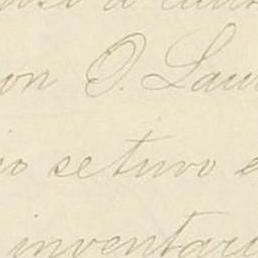 on O. Lau
io seturo e
inventar